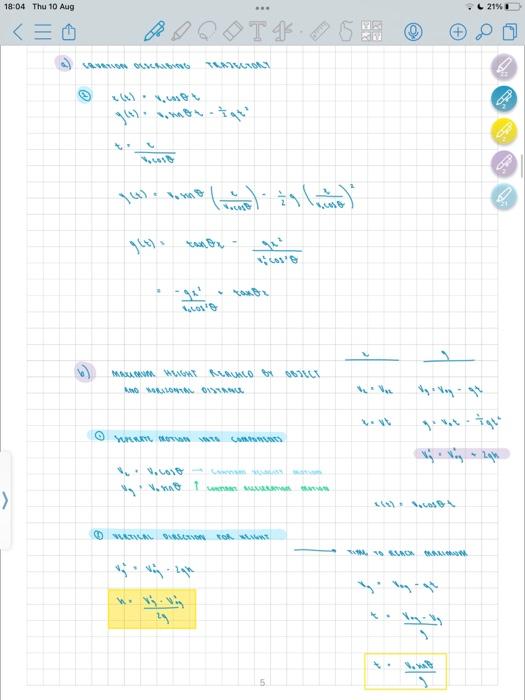 18:04 Thu 10 Aug
21%
a) EQUATION DESCRIBING TRAJECTORY
② x(t) = v₀cosθt
y(t) = v₀sinθt - ½gt²
t = x / v₀cosθ
y(t) = v₀sinθ (x / v₀cosθ) - ½g (x / v₀cosθ)²
y(t) = tanθx - gx² / v₀²cos²θ
= -gx² / v₀cos²θ + tanθx
b) MAXIMUM HEIGHT REACHED BY OBJECT
AND HORIZONTAL DISTANCE
x y
vₓ = v₀ₓ vy = v₀y - gt
x = vt y = v₀t - ½gt²
vy² = v₀y² + 2gh
x(t) = v₀cosθt
① SEPERATE MOTION INTO COMPONENTS
vₓ = v₀cosθ → CONSTANT VELOCITY MOTION
vy = v₀sinθ ↑ CONSTANT ACCELERATION MOTION
VERTICAL DIRECTION FOR HEIGHT
vy² = v₀y² - 2gh
h = vy² - v₀y² / 2g
→ TIME TO REACH MAXIMUM
vy = v₀y - gt
t = v₀y - vy / g
t = v₀sinθ / g
5